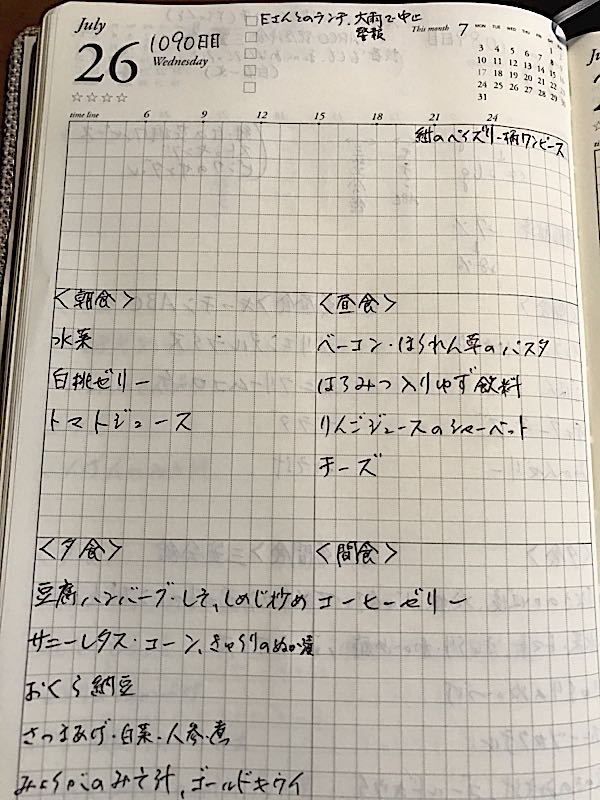 July
26
Wednesday
1090日目
Eさんとのランチ、大雨で中止
警報
This month 7
MON TUE WED THU FRI
3 4 5 6 7 8
10 11 12 13 14 15
17 18 19 20 21 22
24 25 26 27 28 29
31
time line 6 9 12 15 18 21 24
紺のペイズリー柄ワンピース
<朝食>
水菜
白桃ゼリー
トマトジュース
<昼食>
ベーコン・ほうれん草のパスタ
はちみつ入りゆず飲料
りんごジュースのシャーベット
チーズ
<夕食>
豆腐ハンバーグ・しそ、しめじ炒め
サニーレタス・コーン、きゅうりのぬか漬
おくら納豆
さつまあげ・白菜・人参・煮
みょうがのみそ汁、ゴールドキウイ
<間食>
コーヒーゼリー